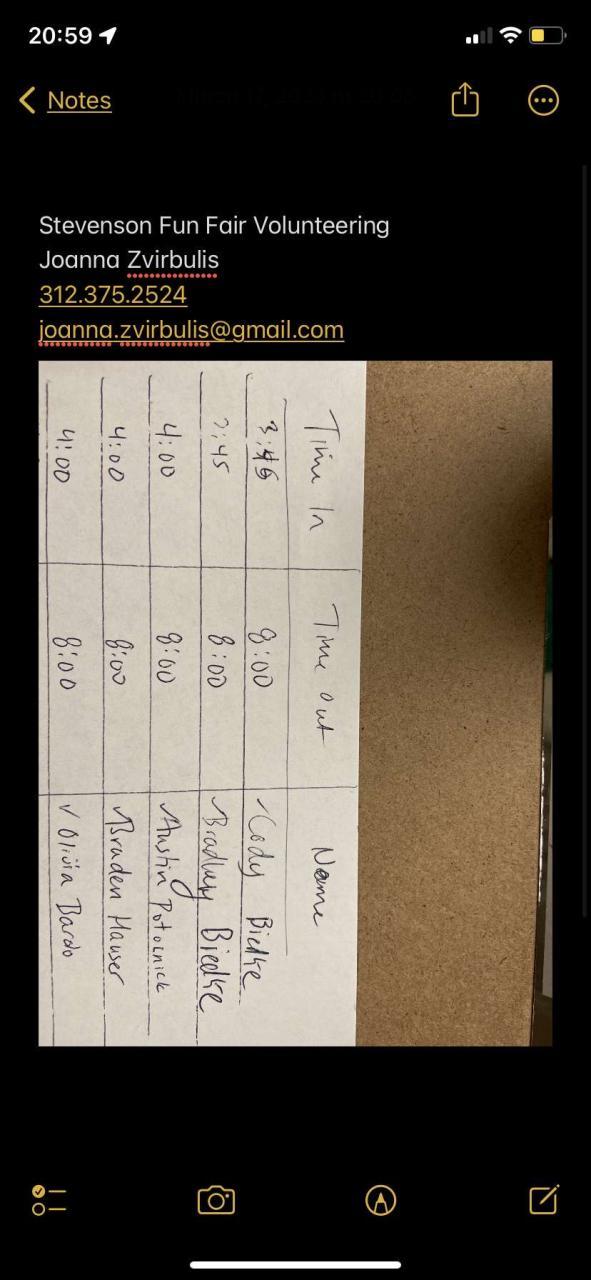 20:59
Notes
Stevenson Fun Fair Volunteering
Joanna Zvirbulis
312.375.2524
joanna.zvirbulis@gmail.com
Time In Time out Name
8:00 Cody
8:00 Bradley Biedke
4:00 8:00 Austin Potocnick
4:00 8:00 Braden Hauser
4:00 8:00 Olivia Bardo